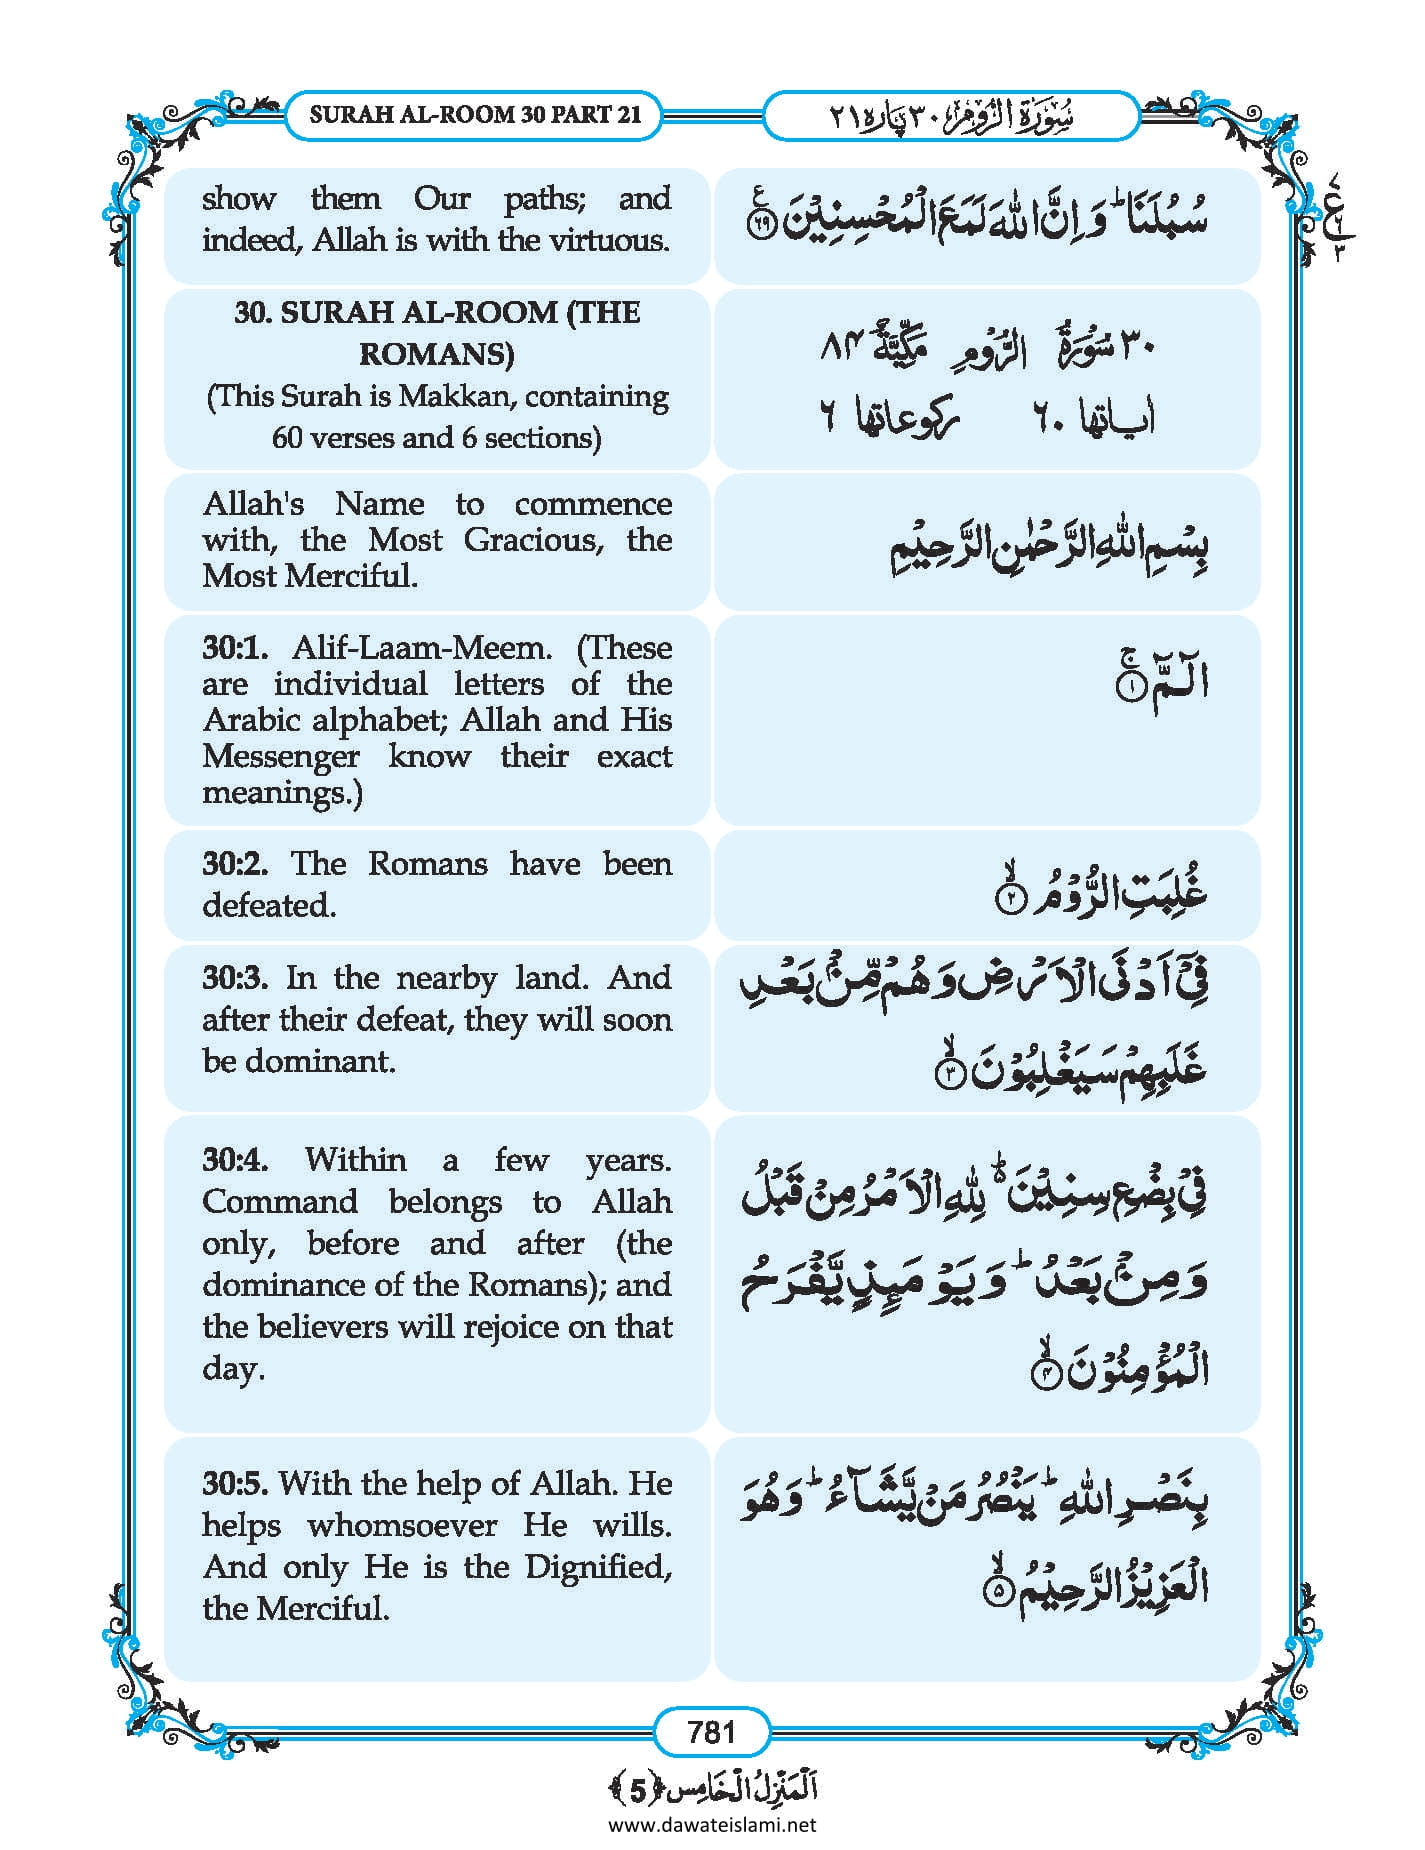 SURAH AL-ROOM 30 PART 21
سُوْرَةُ الرُّوْم ٣٠ پاره ٢١
show them Our paths; and
indeed, Allah is with the virtuous.
سُبُلَنَا ؕ وَ اِنَّ اللّٰهَ لَمَعَ الْمُحْسِنِیْنَ ﴿٦٩﴾ ع
30. SURAH AL-ROOM (THE
ROMANS)
(This Surah is Makkan, containing
60 verses and 6 sections)
٣٠ سُوْرَةُ الرُّوْمِ مَكِّيَّةٌ ٨۴
اٰیاتها ٦٠ ركوعاتها ٦
Allah's Name to commence
with, the Most Gracious, the
Most Merciful.
بِسْمِ اللّٰهِ الرَّحْمٰنِ الرَّحِیْمِ
30:1. Alif-Laam-Meem. (These
are individual letters of the
Arabic alphabet; Allah and His
Messenger know their exact
meanings.)
الٓمّٓ ۚ﴿١﴾
30:2. The Romans have been
defeated.
غُلِبَتِ الرُّوْمُ ۙ﴿٢﴾
30:3. In the nearby land. And
after their defeat, they will soon
be dominant.
فِیْۤ اَدْنَی الْاَرْضِ وَ هُمْ مِّنْۢ بَعْدِ
غَلَبِهِمْ سَیَغْلِبُوْنَ ۙ﴿٣﴾
30:4. Within a few years.
Command belongs to Allah
only, before and after (the
dominance of the Romans); and
the believers will rejoice on that
day.
فِیْ بِضْعِ سِنِیْنَ ۬ؕ لِلّٰهِ الْاَمْرُ مِنْ قَبْلُ
وَ مِنْۢ بَعْدُ ؕ وَ یَوْمَىِٕذٍ یَّفْرَحُ
الْمُؤْمِنُوْنَ ۙ﴿۴﴾
30:5. With the help of Allah. He
helps whomsoever He wills.
And only He is the Dignified,
the Merciful.
بِنَصْرِ اللّٰهِ ؕ یَنْصُرُ مَنْ یَّشَآءُ ؕ وَ هُوَ
الْعَزِیْزُ الرَّحِیْمُ ۙ﴿۵﴾
781
اَلْمَنْزِلُ الْخَامِس ﴿5﴾
www.dawateislami.net